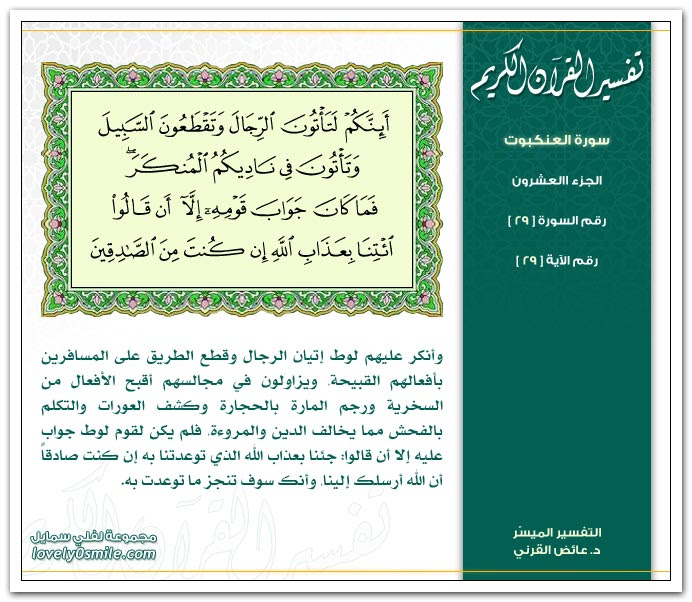 تفسير القرآن الكريم
سورة العنكبوت
الجزء االعشرون
رقم السورة [ ٢٩ ]
رقم الآية [ ٢٩ ]
أَئِنَّكُمْ لَتَأْتُونَ ٱلرِّجَالَ وَتَقْطَعُونَ ٱلسَّبِيلَ
وَتَأْتُونَ فِى نَادِيكُمُ ٱلْمُنكَرَ ۖ
فَمَا كَانَ جَوَابَ قَوْمِهِۦٓ إِلَّآ أَن قَالُوا۟
ٱئْتِنَا بِعَذَابِ ٱللَّهِ إِن كُنتَ مِنَ ٱلصَّٰدِقِينَ
وأنكر عليهم لوط إتيان الرجال وقطع الطريق على المسافرين
بأفعالهم القبيحة. ويزاولون في مجالسهم أقبح الأفعال من
السخرية ورجم المارة بالحجارة وكشف العورات والتكلم
بالفحش مما يخالف الدين والمروءة. فلم يكن لقوم لوط جواب
عليه إلا أن قالوا: جئنا بعذاب الله الذي توعدتنا به إن كنت صادقاً
أن الله أرسلك إلينا، وأنك سوف تنجز ما توعدت به.
التفسير الميسّر
د. عائض القرني
مجموعة لفلي سمايل
lovely0smile.com
تفسير القرآن الكريم